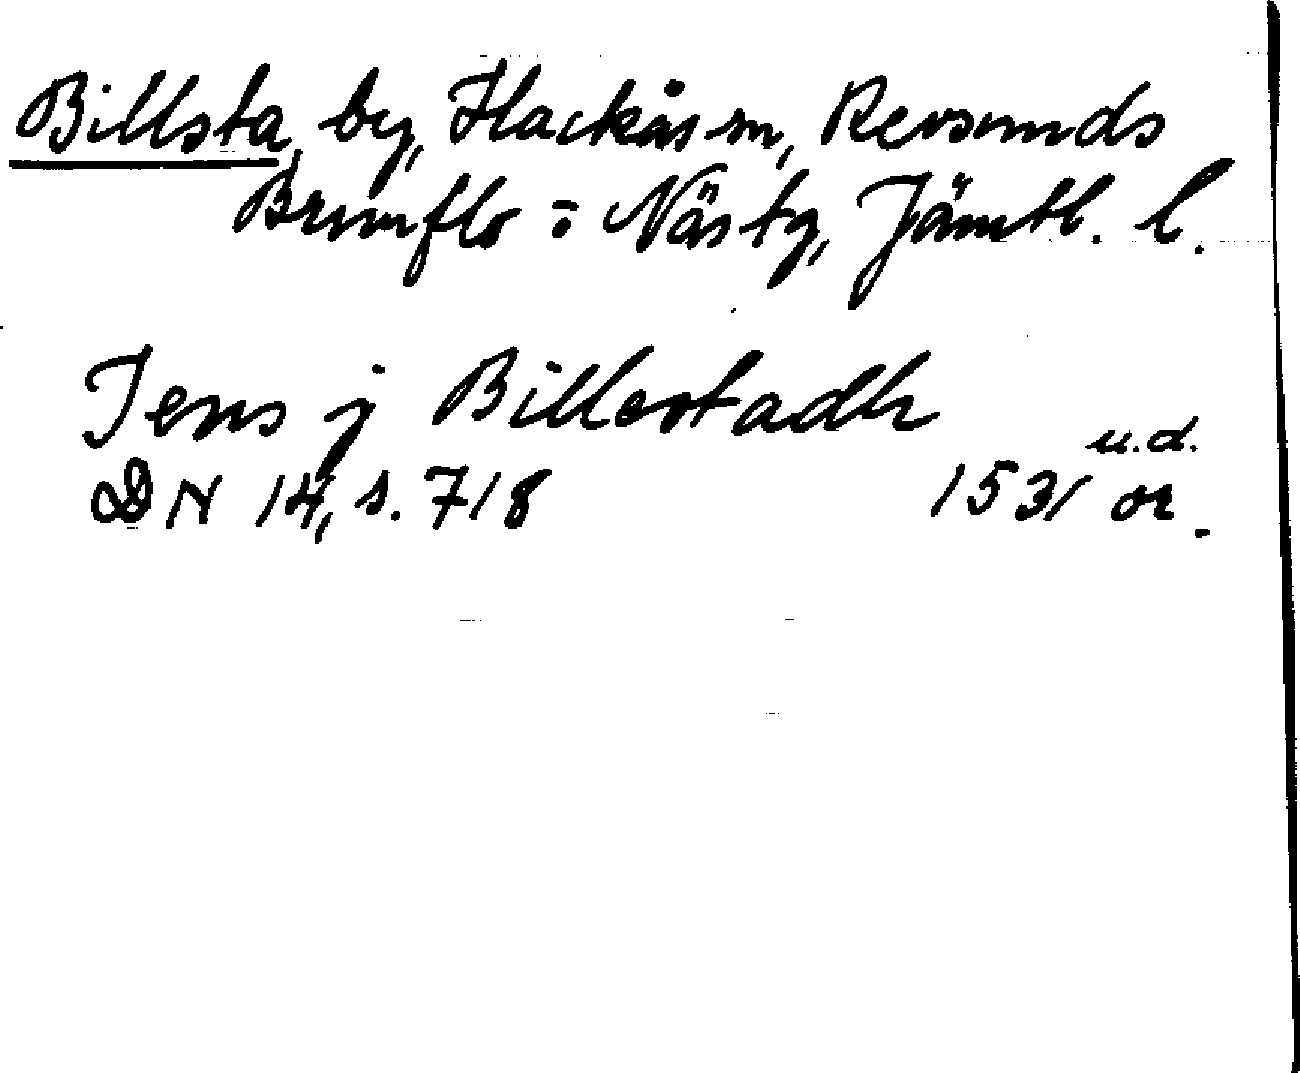 Billsta, by, Hackås sn, Revsunds
Brunflo o Näs tg, Jämtl. l.
Jens j Billestadh
u.d.
DN 14, s. 718 1531 or.